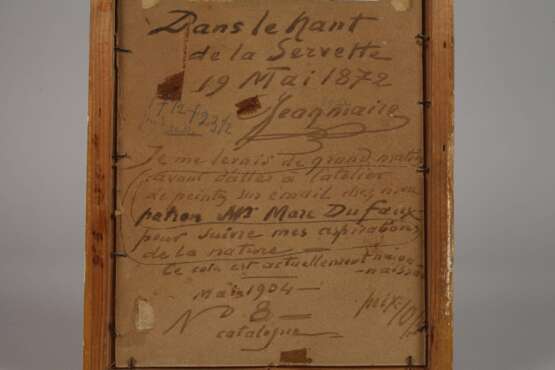 Dans le haut
de la Servette
19 Mai 1872
Jeanmaire
Je me levais de grand matin
avant d'aller à l'atelier
de peintre sur émail chez mon
patron Mr Marc Dufaux
pour suivre mes aspirations
de la nature —
Ce coin est actuellement
Mai 1904 —
No 8 —
catalogue
prix